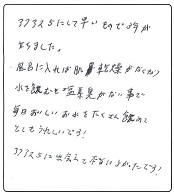 アクアスSにして早いもので3年が
たちました。
風呂に入れば肌の乾燥がなくなり
水を飲むと塩素臭がない事で
毎日おいしいお水をたくさん飲めて
とてもうれしいです!
アクアスSに出会えて本当によかったです!